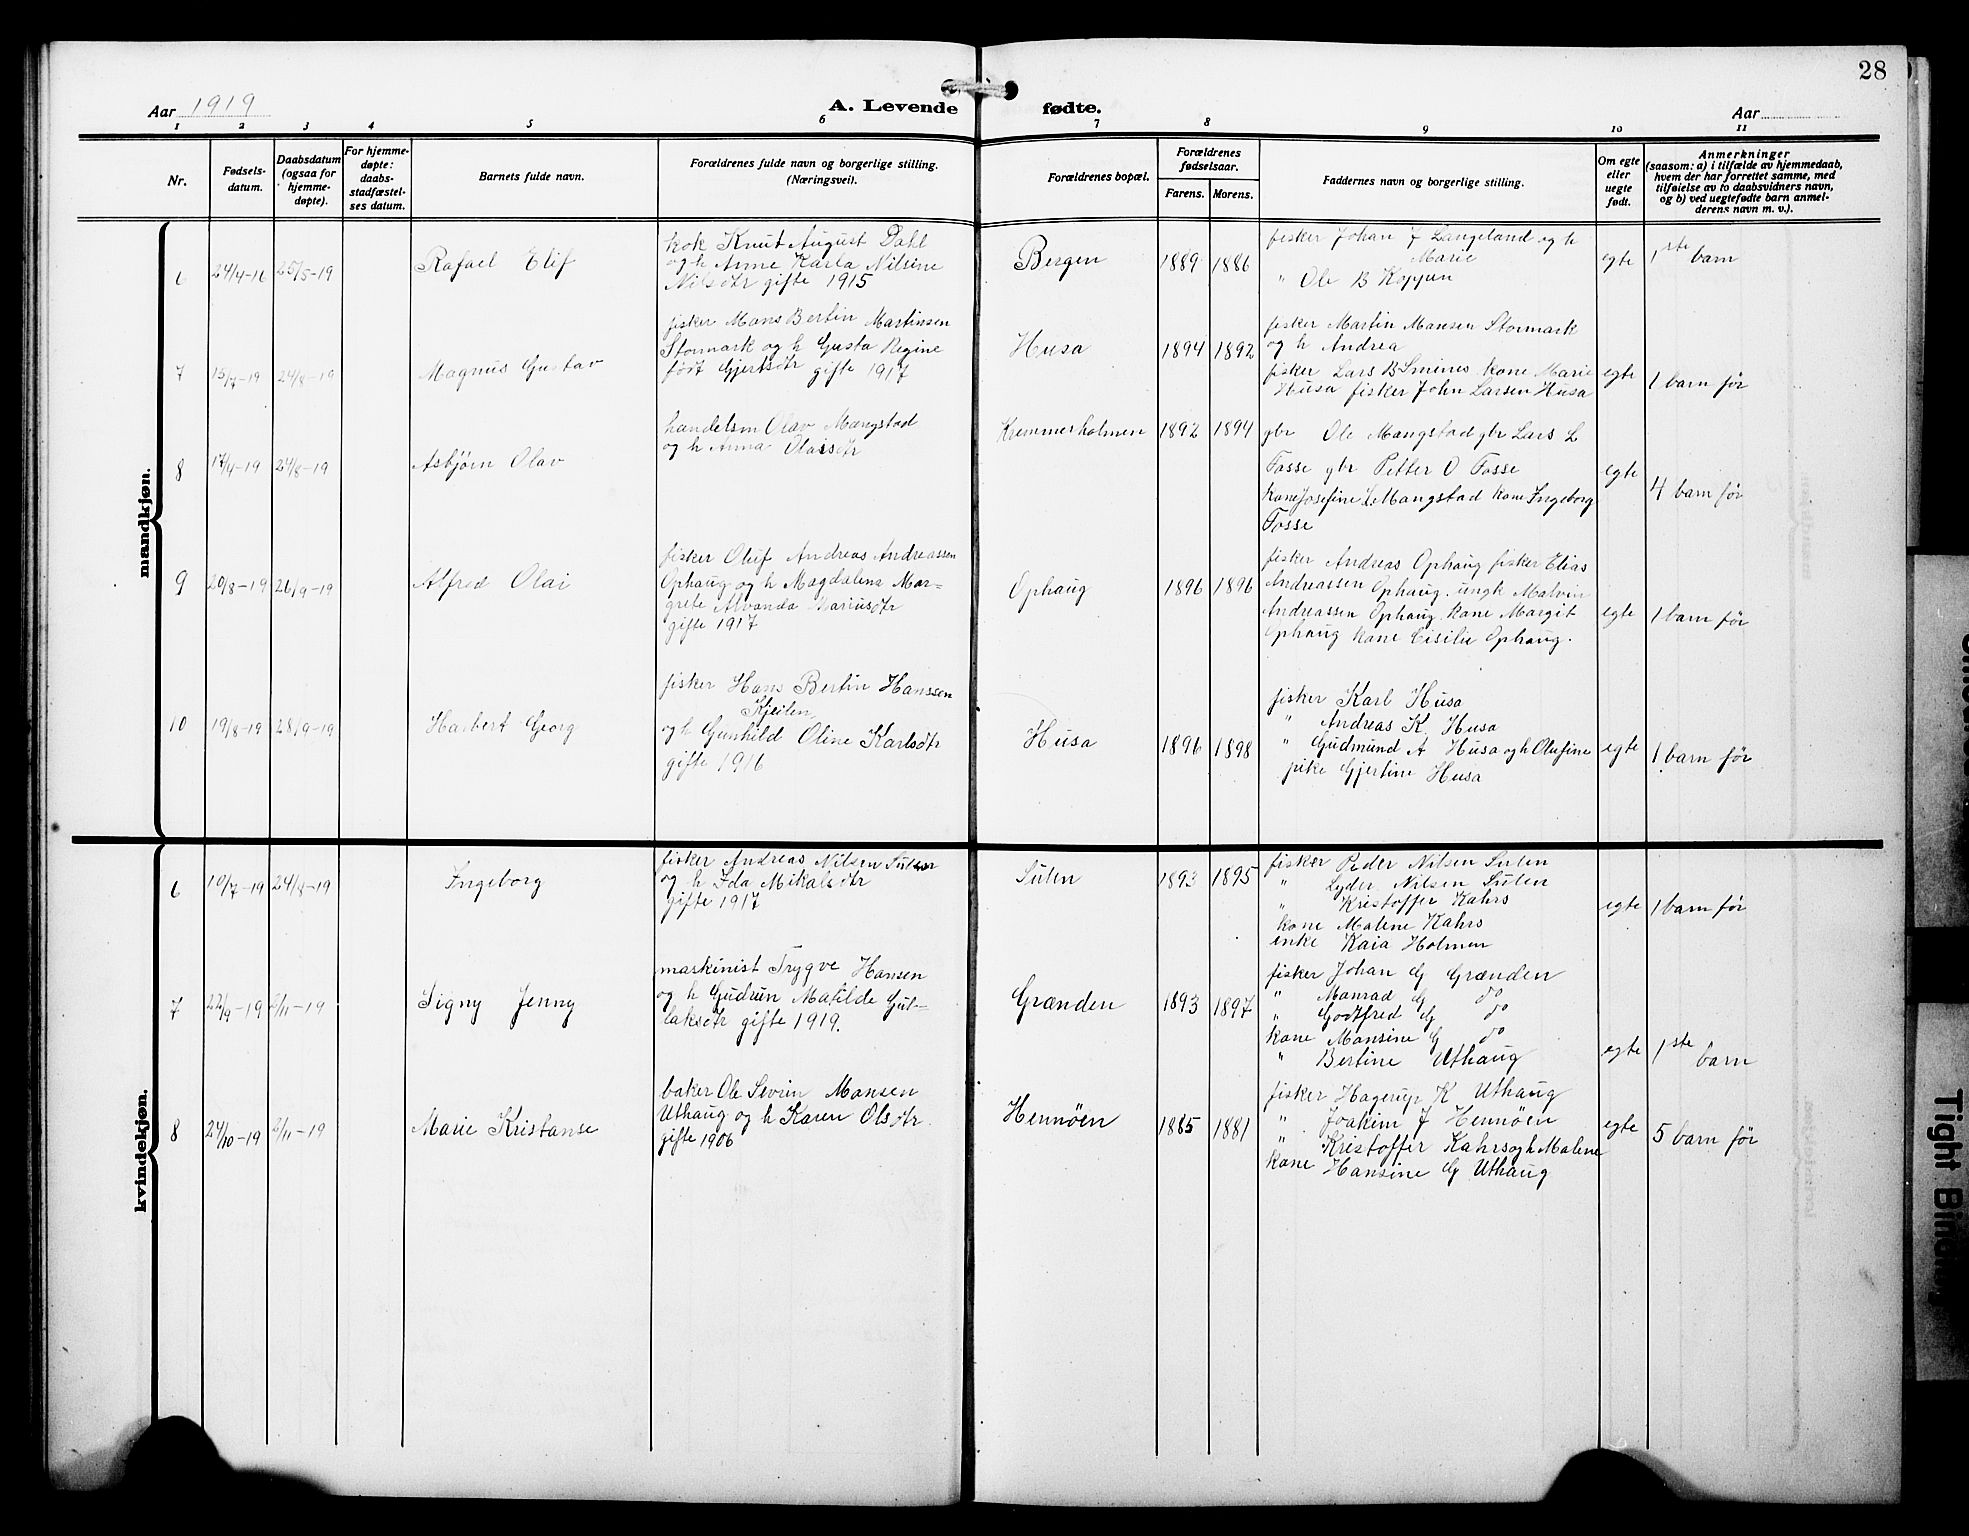 28
Aar 1919
A. Levende fødte.
Aar
1 2 3 4 5 6 7 8 9 10 11
Nr.
Fødsels-
datum.
Daabsdatum
(ogsaa for
hjemme-
døpte).
For hjemme-
døpte:
daabs-
stadfæstel-
ses datum.
Barnets fulde navn.
Forældrenes fulde navn og borgerlige stilling.
(Næringsvei).
Forældrenes bopæl.
Forældrenes
fødselsaar.
Farens. Morens.
Faddernes navn og borgerlige stilling.
Om egte
eller
uegte
født.
Anmerkninger
(saasom: a) i tilfælde av hjemmedaab,
hvem der har forrettet samme, med
tilføielse av to daabsvidners navn,
og b) ved uegtefødte barn anmel-
derens navn m. v.).
mandkjøn.
6 24/4-16 25/5-19
Rafael Elif
kok Knut August Dahl
og h Anne Karla Nilsine
Nilsdtr gifte 1915
Bergen
1889 1886
fisker Johan J Langeland og h
Marie
" Ole B Koppen
egte
1ste barn
7 15/7-19 24/8-19
Magnus Gustav
fisker Mons Bertin Martinsen
Stormark og h Gusta Regine
født Gjertsdtr gifte 1917
Husa
1894 1892
fisker Martin Mansen Stormark
og h Andrea
fisker Lars B Smines kone Marie
Husa fisker John Larsen Husa
egte
1 barn før
8 17/4-19 24/8-19
Asbjørn Olav
handelsm Olav Mangstad
og h Anna Olaisdtr
Kremmerholmen
1892 1894
gbr Ole Mangstad gbr Lars L
Fosse gbr Petter O Fosse
kone Josefine L Mangstad kone Ingeborg
Fosse
egte
4 barn før
9 20/8-19 26/9-19
Alfred Olai
fisker Oluf Andreas Andreassen
Ophaug og h Magdalena Mar-
grete Alvanda Mariusdtr
gifte 1917
Ophaug
1896 1896
fisker Andreas Ophaug fisker Elias
Andreassen Ophaug. ungk Malvin
Andreassen Ophaug kone Margit
Ophaug kone Cisilie Ophaug.
egte
1 barn før
10 19/8-19 28/9-19
Harbert Georg
fisker Hans Bertin Hanssen
Kjeilen
og h Gunhild Oline Karlsdtr
gifte 1916
Husa
1896 1898
fisker Karl Husa
" Andreas K. Husa
" Gudmund A Husa og h Olufine
pike Gjertine Husa
egte
1 barn før
kvindekjøn.
6 10/7-19 24/8-19
Ingeborg
fisker Andreas Nilsen Sulen
og h Ida Mikalsdtr
gifte 1917
Sulen
1893 1895
fisker Peder Nilsen Sulen
" Lyder Nilsen Sulen
" Kristoffer Kahrs
kone Malene Kahrs
enke Kaia Holmen
egte
1 barn før
7 22/9-19 2/11-19
Signy Jenny
maskinist Trygve Hansen
og h Gudrun Matilde Gut-
laksdtr gifte 1919.
Grænden
1893 1897
fisker Johan G Grænden
" Monrad G do
" Godtfred G do
kone Mansine G do
" Bertine Uthaug
egte
1ste barn
8 24/10-19 2/11-19
Marie Kristanse
baker Ole Severin Mansen
Uthaug og h Karen Olsdtr
gifte 1906
Hennøen
1885 1881
fisker Hagerup K Uthaug
" Joakim J Hennøen
" Kristoffer Kahrs og h Malene
kone Hansine G Uthaug
egte
5 barn før
Tight Binding